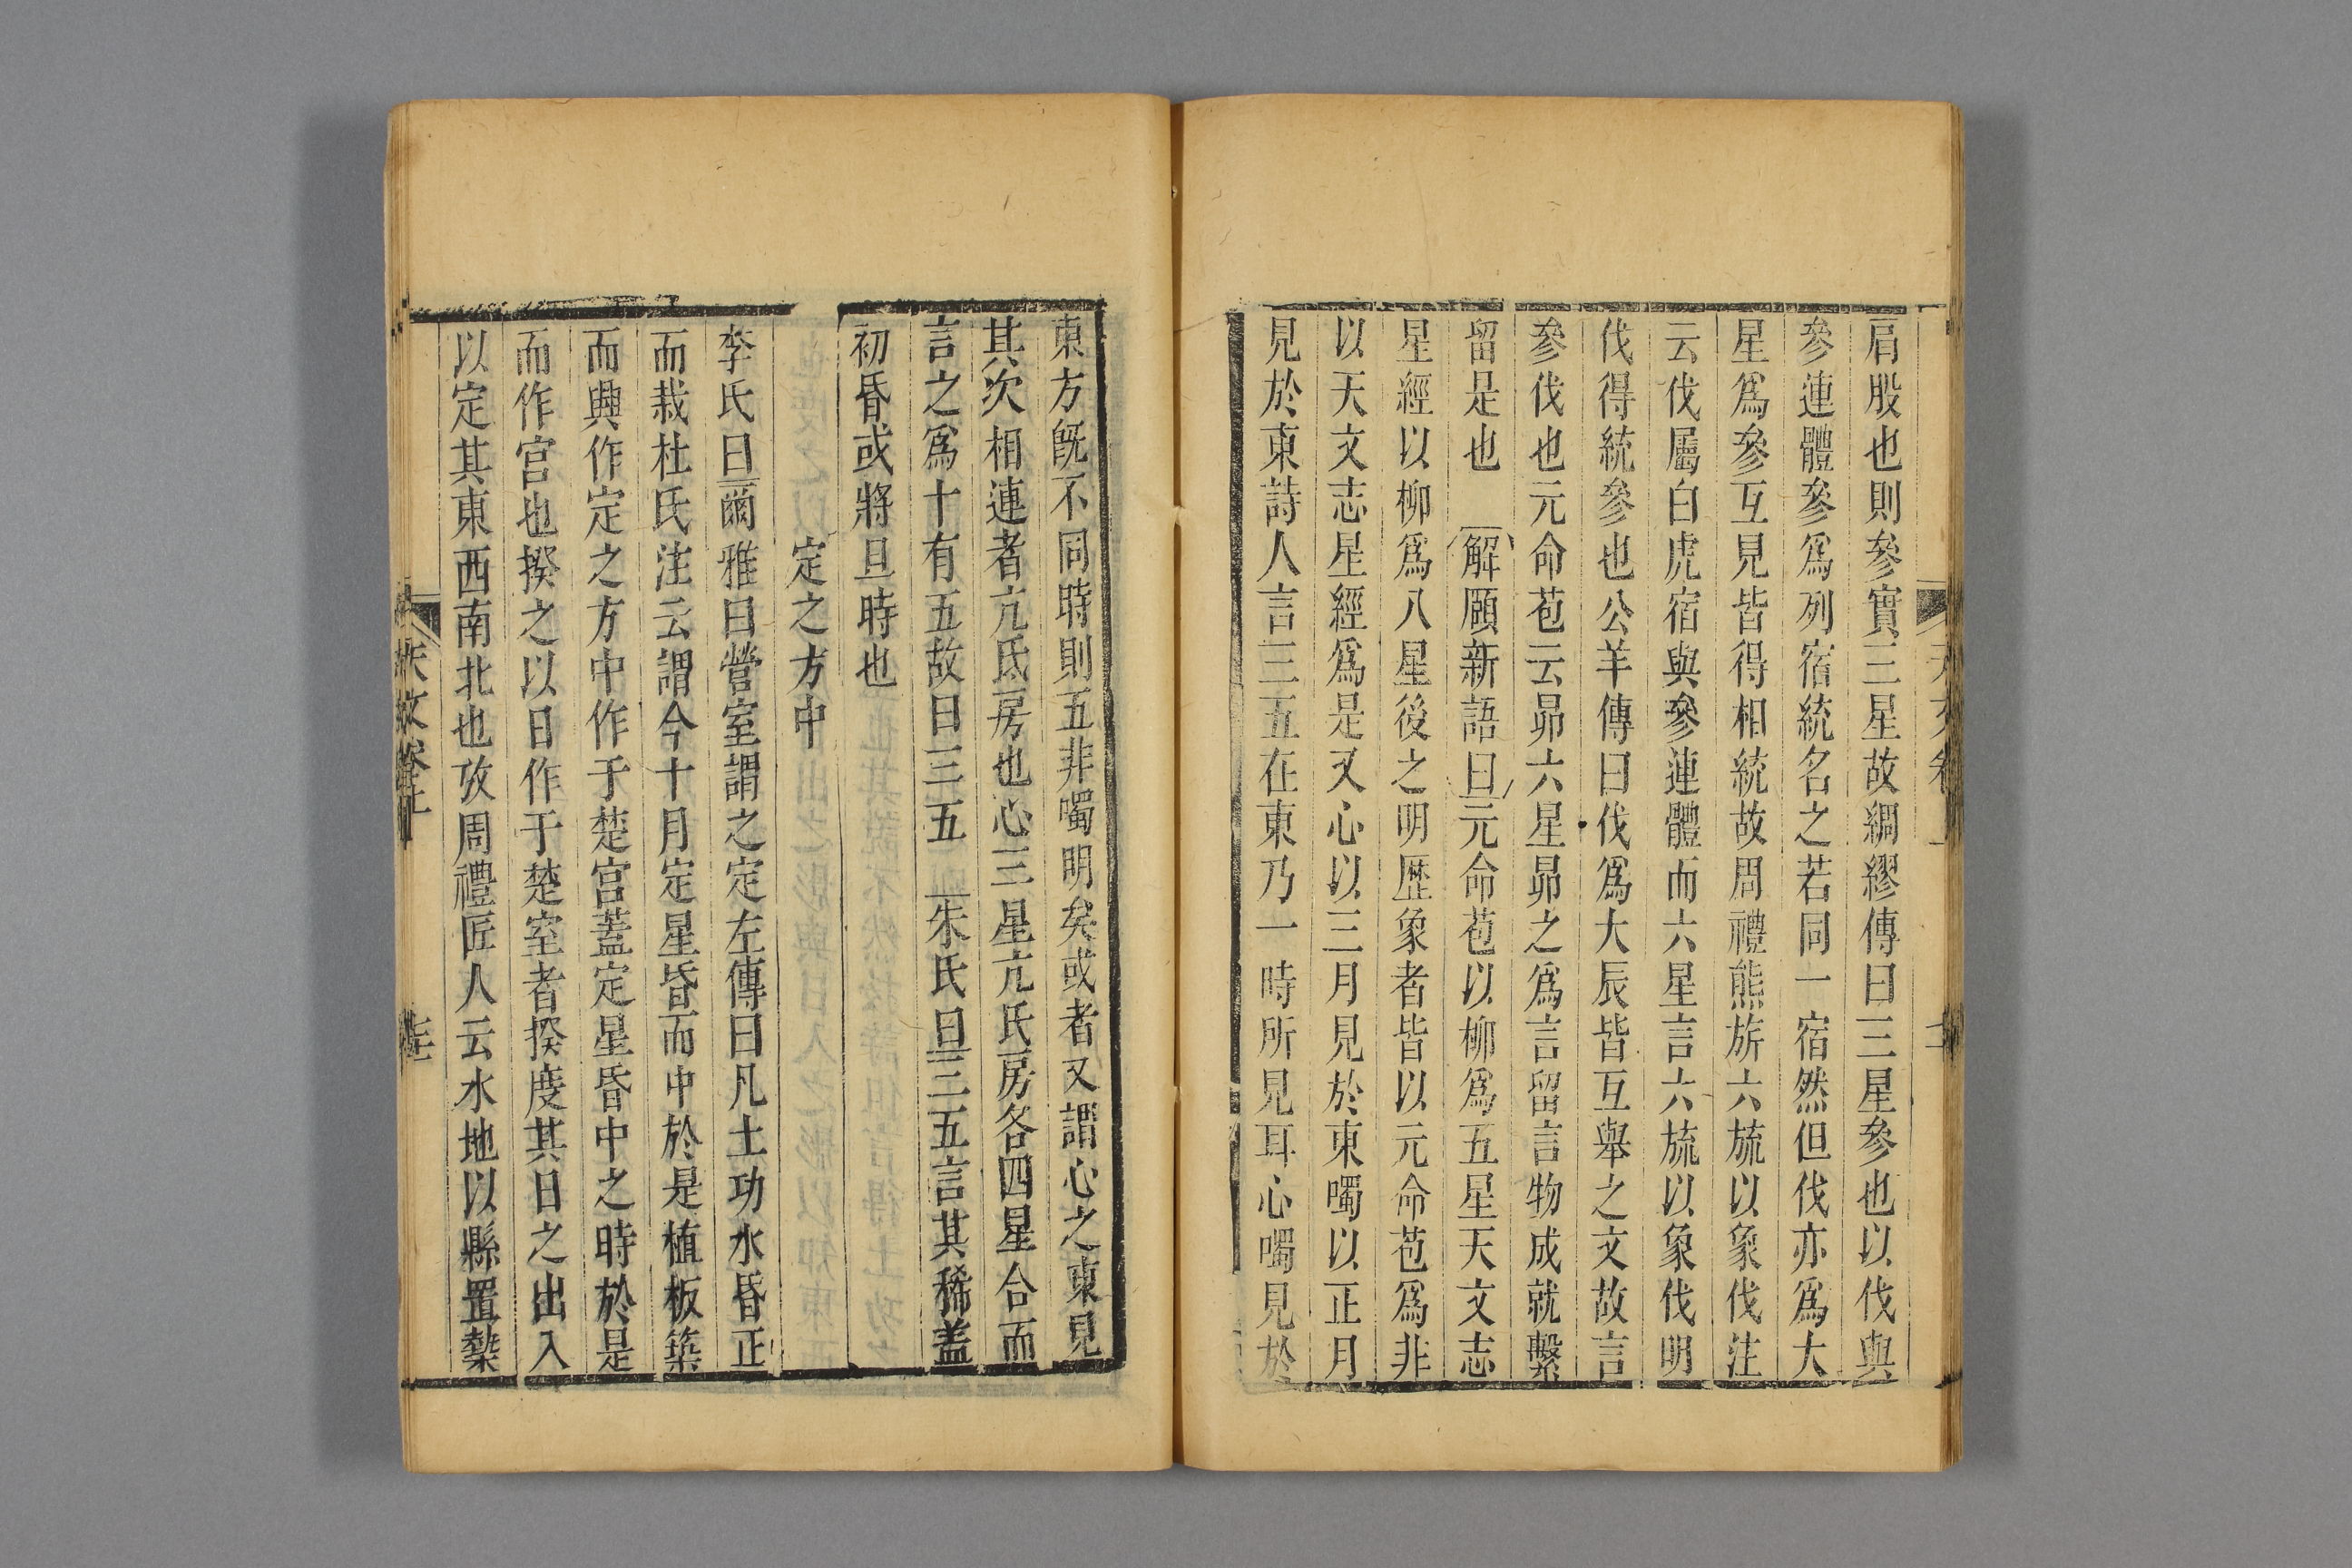 肩股也則參實三星故綢繆傳曰三星參也以伐與
參連體參爲列宿統名之若同一宿然但伐亦爲大
星爲參互見皆得相統故周禮熊旂六旒以象伐注
云伐屬白虎宿與參連體而六星言六旒以象伐明
伐得統參也公羊傳曰伐爲大辰皆互舉之文故言
參伐也元命苞云昴六星昴之爲言留言物成就繫
留是也　解頤新語曰元命苞以柳爲五星天文志
星經以柳爲八星後之明歷象者皆以元命苞爲非
以天文志星經爲是又心以三月見於東噣以正月
見於東詩人言三五在東乃一時所見耳心噣見於
東方旣不同時則五非噣明矣或者又謂心之東見
其次相連者亢氐房也心三星亢氐房各四星合而
言之爲十有五故曰三五　朱氏曰三五言其稀盖
初昏或將旦時也
定之方中
李氏曰爾雅曰營室謂之定左傳曰凡土功水昏正
而栽杜氏注云謂今十月定星昏而中於是植板築
而興作定之方中作于楚宮蓋定星昏中之時於是
而作宮也揆之以日作于楚室者揆度其日之出入
以定其東西南北也攷周禮匠人云水地以縣置槷
天文卷上